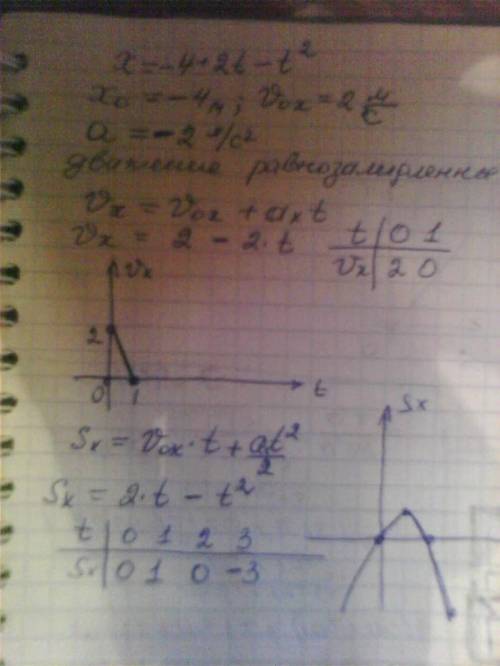 x=-4+2t-t²
x₀ = -4м; v₀ₓ = 2 м/с
a = -2 м/с²
движение равнозамедленные
vₓ = v₀ₓ + aₓt
vₓ = 2 - 2·t
t | 0 1
vₓ | 2 0
vₓ
2
0 1 t
Sₓ = v₀ₓ·t + at²/2
Sₓ = 2·t - t²
t | 0 1 2 3
Sₓ | 0 1 0 -3
Sₓ